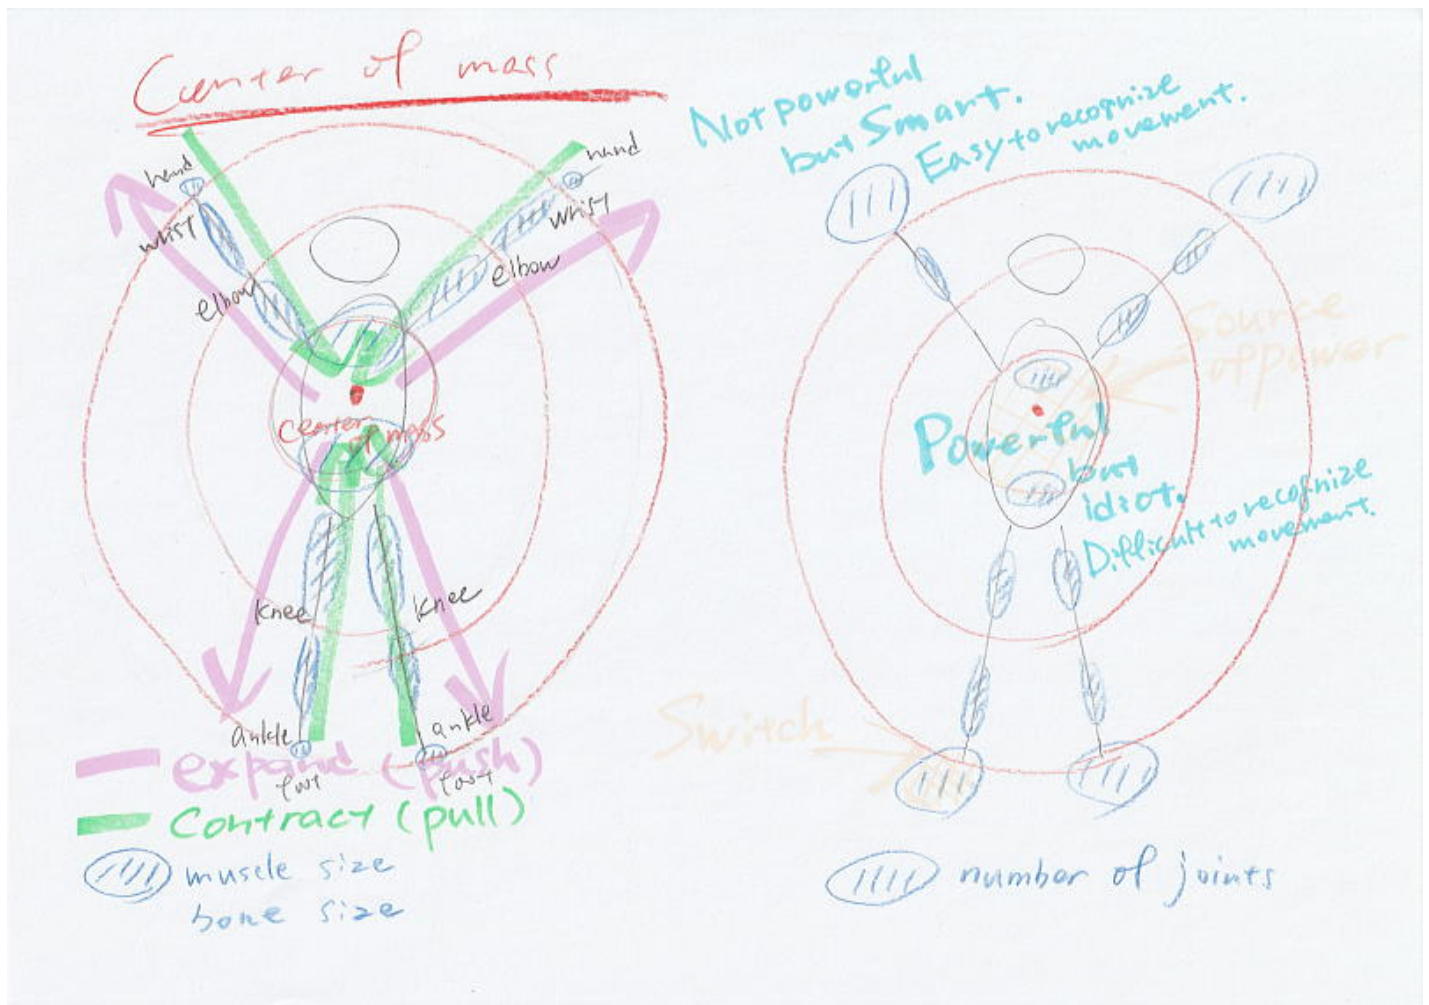 Center of mass
hand
hand
wrist
wrist
elbow
elbow
center
of mass
knee
knee
ankle
ankle
foot
foot
expand (push)
Contract (pull)
muscle size
bone size
Not powerful
but Smart.
Easy to recognize
movement.
Source
of power
Powerful
but
idiot.
Difficult to recognize
movement.
Switch
number of joints